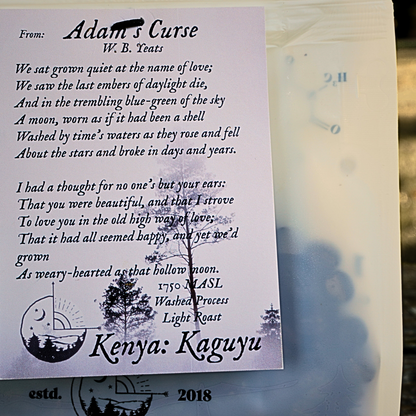 From: Adam's Curse
W. B. Yeats
We sat grown quiet at the name of love;
We saw the last embers of daylight die,
And in the trembling blue-green of the sky
A moon, worn as if it had been a shell
Washed by time's waters as they rose and fell
About the stars and broke in days and years.
I had a thought for no one's but your ears:
That you were beautiful, and that I strove
To love you in the old high way of love;
That it had all seemed happy, and yet we'd
grown
As weary-hearted as that hollow moon.
1750 MASL
Washed Process
Light Roast
Kenya: Kaguyu
estd. 2018
H₃C
O